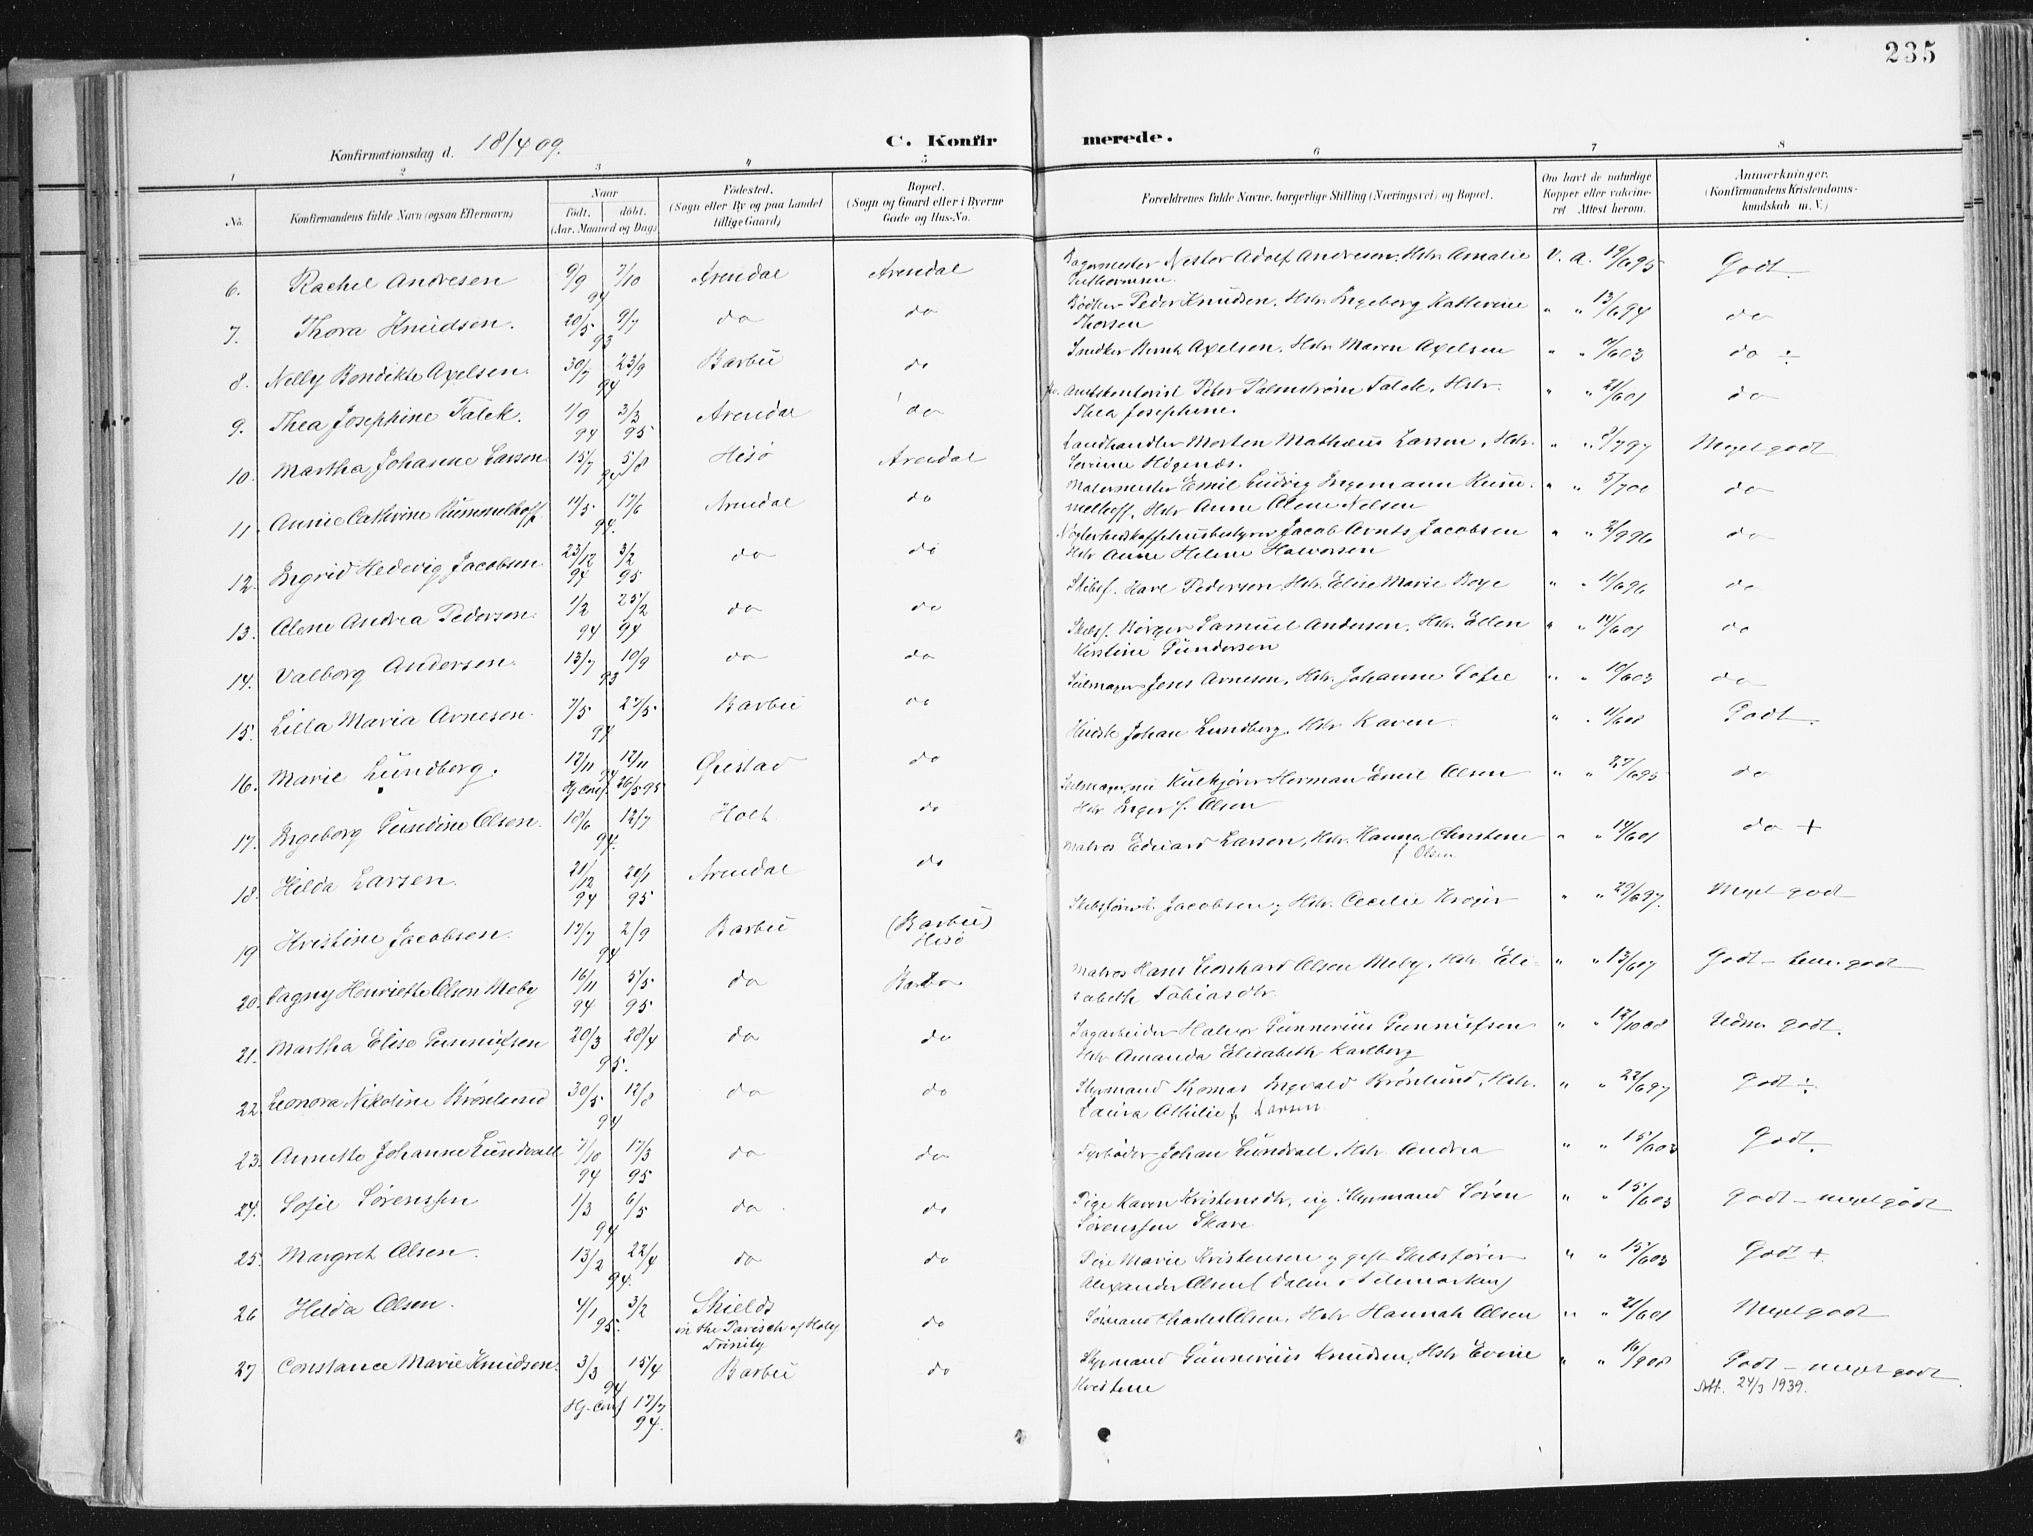 235
Konfirmationsdag d. 18/4 09.
C. Konfirmerede.
1 2 3 4 5 6 7 8
No. Konfirmandens fulde Navn (ogsaa Efternavn) Naar født. døbt. (Aar, Maaned og Dag) Fødested. (Sogn eller By og paa Landet tillige Gaard) Bopæl. (Sogn og Gaard eller i Byerne Gade og Hus-No. Forældrenes fulde Navne, borgerlige Stilling (Næringsvei) og Bopæl. Om havt de naturlige Kopper eller vakcineret. Attest herom. Anmerkninger. (Konfirmandens Kristendomskundskab m. V.)
6. Rachel Andresen 9/9 7/10 94 Arendal Arendal Nestor Adolf Andresen, Hstr. Amalie V. A. 19/6 95 Godt.
7. Thora Knudsen. 20/5 9/7 93 do do Bødker Peder Knudsen, Hstr. Ingeborg Kathrine Thorsen " " 13/6 94 do
8. Nelly Bendikte Axelsen. 30/7 23/9 94 Barbu do Snedker Axelsen, Hstr. Maren Axelsen " " do ÷
9. Thea Josephine Falck. 1/9 94 3/3 95 Arendal do Amtskontorist Peter Palmstrøm Falck, Hstr. Thea Josephine. " " 21/6 01 do
10. Martha Johanne Larsen 15/7 5/8 94 Hisø Arendal Landhandler Morten Mathæus Larsen, Hstr. " " Meget godt
11. Annie Cathrine Rummelhoff 11/5 17/6 94. Arendal do Malermester Emil Ludvig Ingemann Rummelhoff, Hstr Anne Olene Nelsen " " 5/7 00 do
12. Ingrid Hedevig Jacobsen 23/12 94 3/2 95 do do Jacob Arnts Jacobsen Hstr Anne Helene Halvorsen " " 2/9 96 do
13. Olene Andrea Pedersen. 1/2 94 25/2 94 do do Skibsf. Pedersen, Hstr. Elise Marie Boye " " 10/6 96 do
14. Valborg Andersen. 13/7 10/9 93 do do Skibsf. Børger Samuel Andersen, Hstr. Ellen Kirstine Gundersen " " 14/6 01 do
15. Lilla Maria Arnesen. 7/5 27/5 94 Barbu do Seilmager Jens Arnesen, Hstr. Johanne Sofie " " 10/6 03 do
16. Marie Lundberg. 12/11 12/11 94 Hj. conf. 26/5 95 Øiestad do Johan Lundberg, Hstr Karen. " " 11/6 08 Godt.
17. Ingeborg Gundine Olsen. 18/6 12/7 94. Holt. do Seilmager, nu Kulkjører Herman Emil Olsen Hstr Inger f. Olsen " " 27/6 95 do
18. Hilda Larsen. 21/12 94 20/1 95 Arendal do Matros Edvard Larsen, Hstr. Hanna Christene f Olsen " " 14/6 01 do +
19 Kristine Jacobsen. 17/7 2/9 94 Barbu (Barbu) Hisø Skibsfører Jacobsen, Hstr. Cecilie Krøger " " 29/6 97. Meget godt
20. Dagny Henriette Olsen Meby 16/11 94 5/5 95 do Barbu Matros Hans Leonhard Olsen Meby, Hstr. Elisabeth Tobiasdtr. " " 13/6 07 Godt – godt
21. Martha Elise Gunnufsen 20/3 28/4 95. do do Sagarbeider Halvor Gunnerius Gunnufsen Hstr Amanda Elisabeth Karlberg " " 12/10 08 godt.
22. Leonora Nikoline Brønlund 30/5 12/8 94 do do Styrmand Ingvald Brønlund, Hstr. Laura Othilie f. Larsen. " " 22/6 97 Godt ÷
23. Annette Johanne Lundvall 7/10 94 17/3 95 do do Fyrbøder Johan Lundvall, Hstr. Andrea " " 15/6 03 Godt.
24. Sofie Sørenssen 1/3 6/5 94 do do Pige Karen Kristensdtr. og Styrmand Søren Sørenssen Skare " " 15/6 03 Godt – meget godt
25. Margret Olsen. 13/2 22/4 94. do do Pige Marie Kristensen og gift Skibsfører Alexander Olsen (Dalen i Telemarken) " " 15/6 03 Godt +
26 Hilda Olsen. 4/1 3/2 95. Shields in the Parisch of Holy Trinity do Sømand Charles Olsen, Hstr Hannah Olsen " " 21/6 01 Meget godt
27 Constance Marie Knudsen. 3/3 15/4 94 Hj. conf 17/7 94. Barbu do Styrmand Gunnerius Knudsen, Hstr Evine Kristene " " 16/9 08 Godt – meget godt.
Att. 24/3 1939.